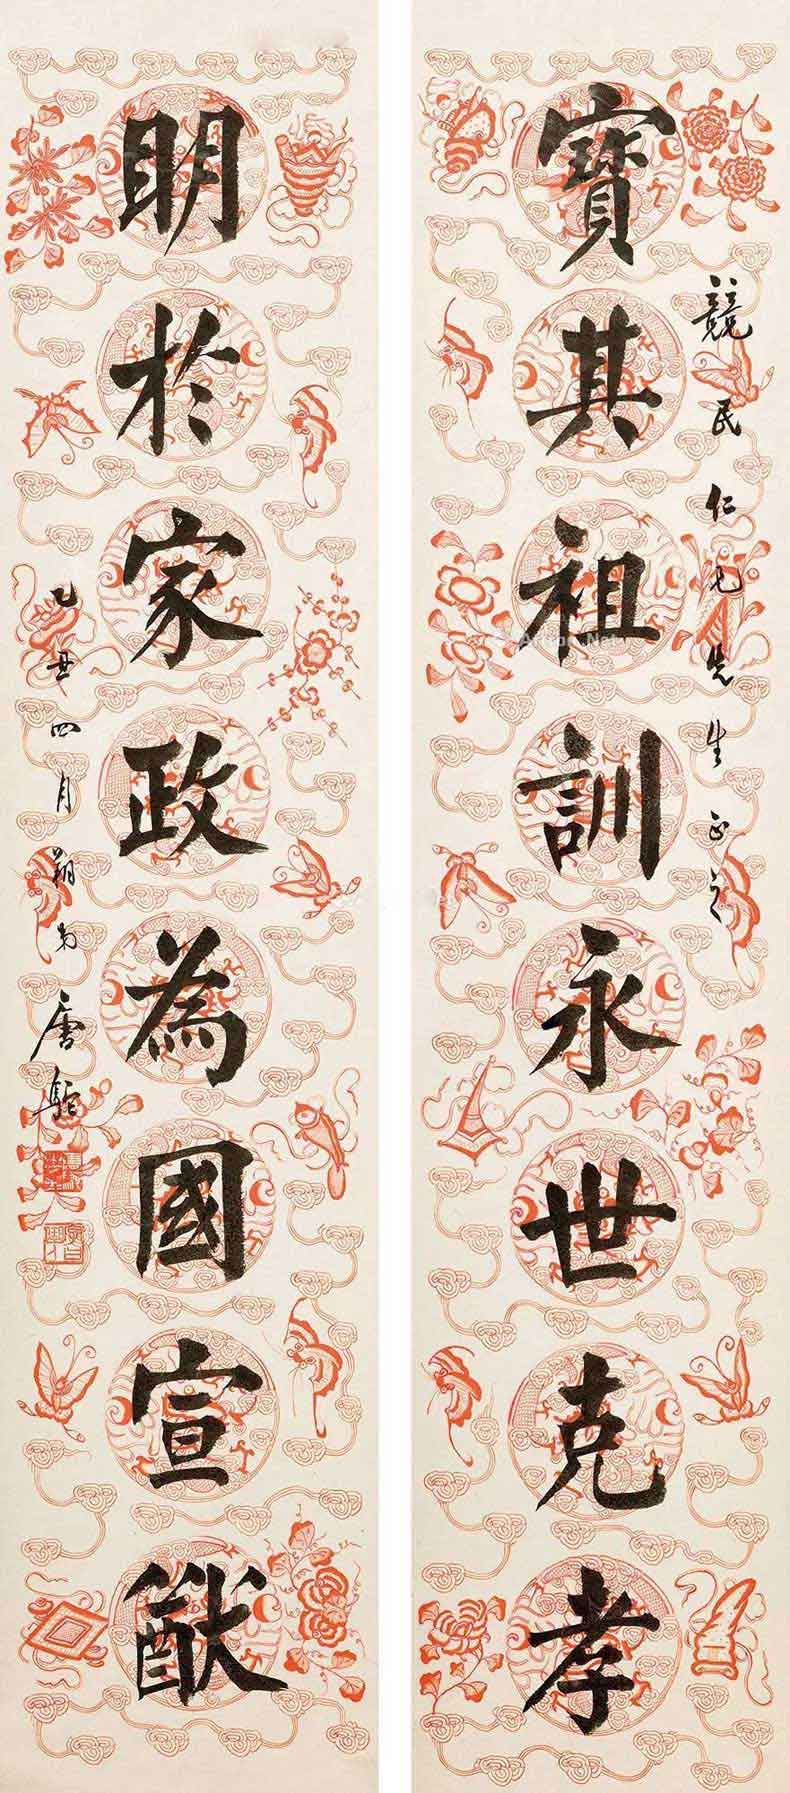 寶其祖訓永世克孝
競民仁兄先生正之
明於家政為國宣猷
乙丑四月朔弟唐駝